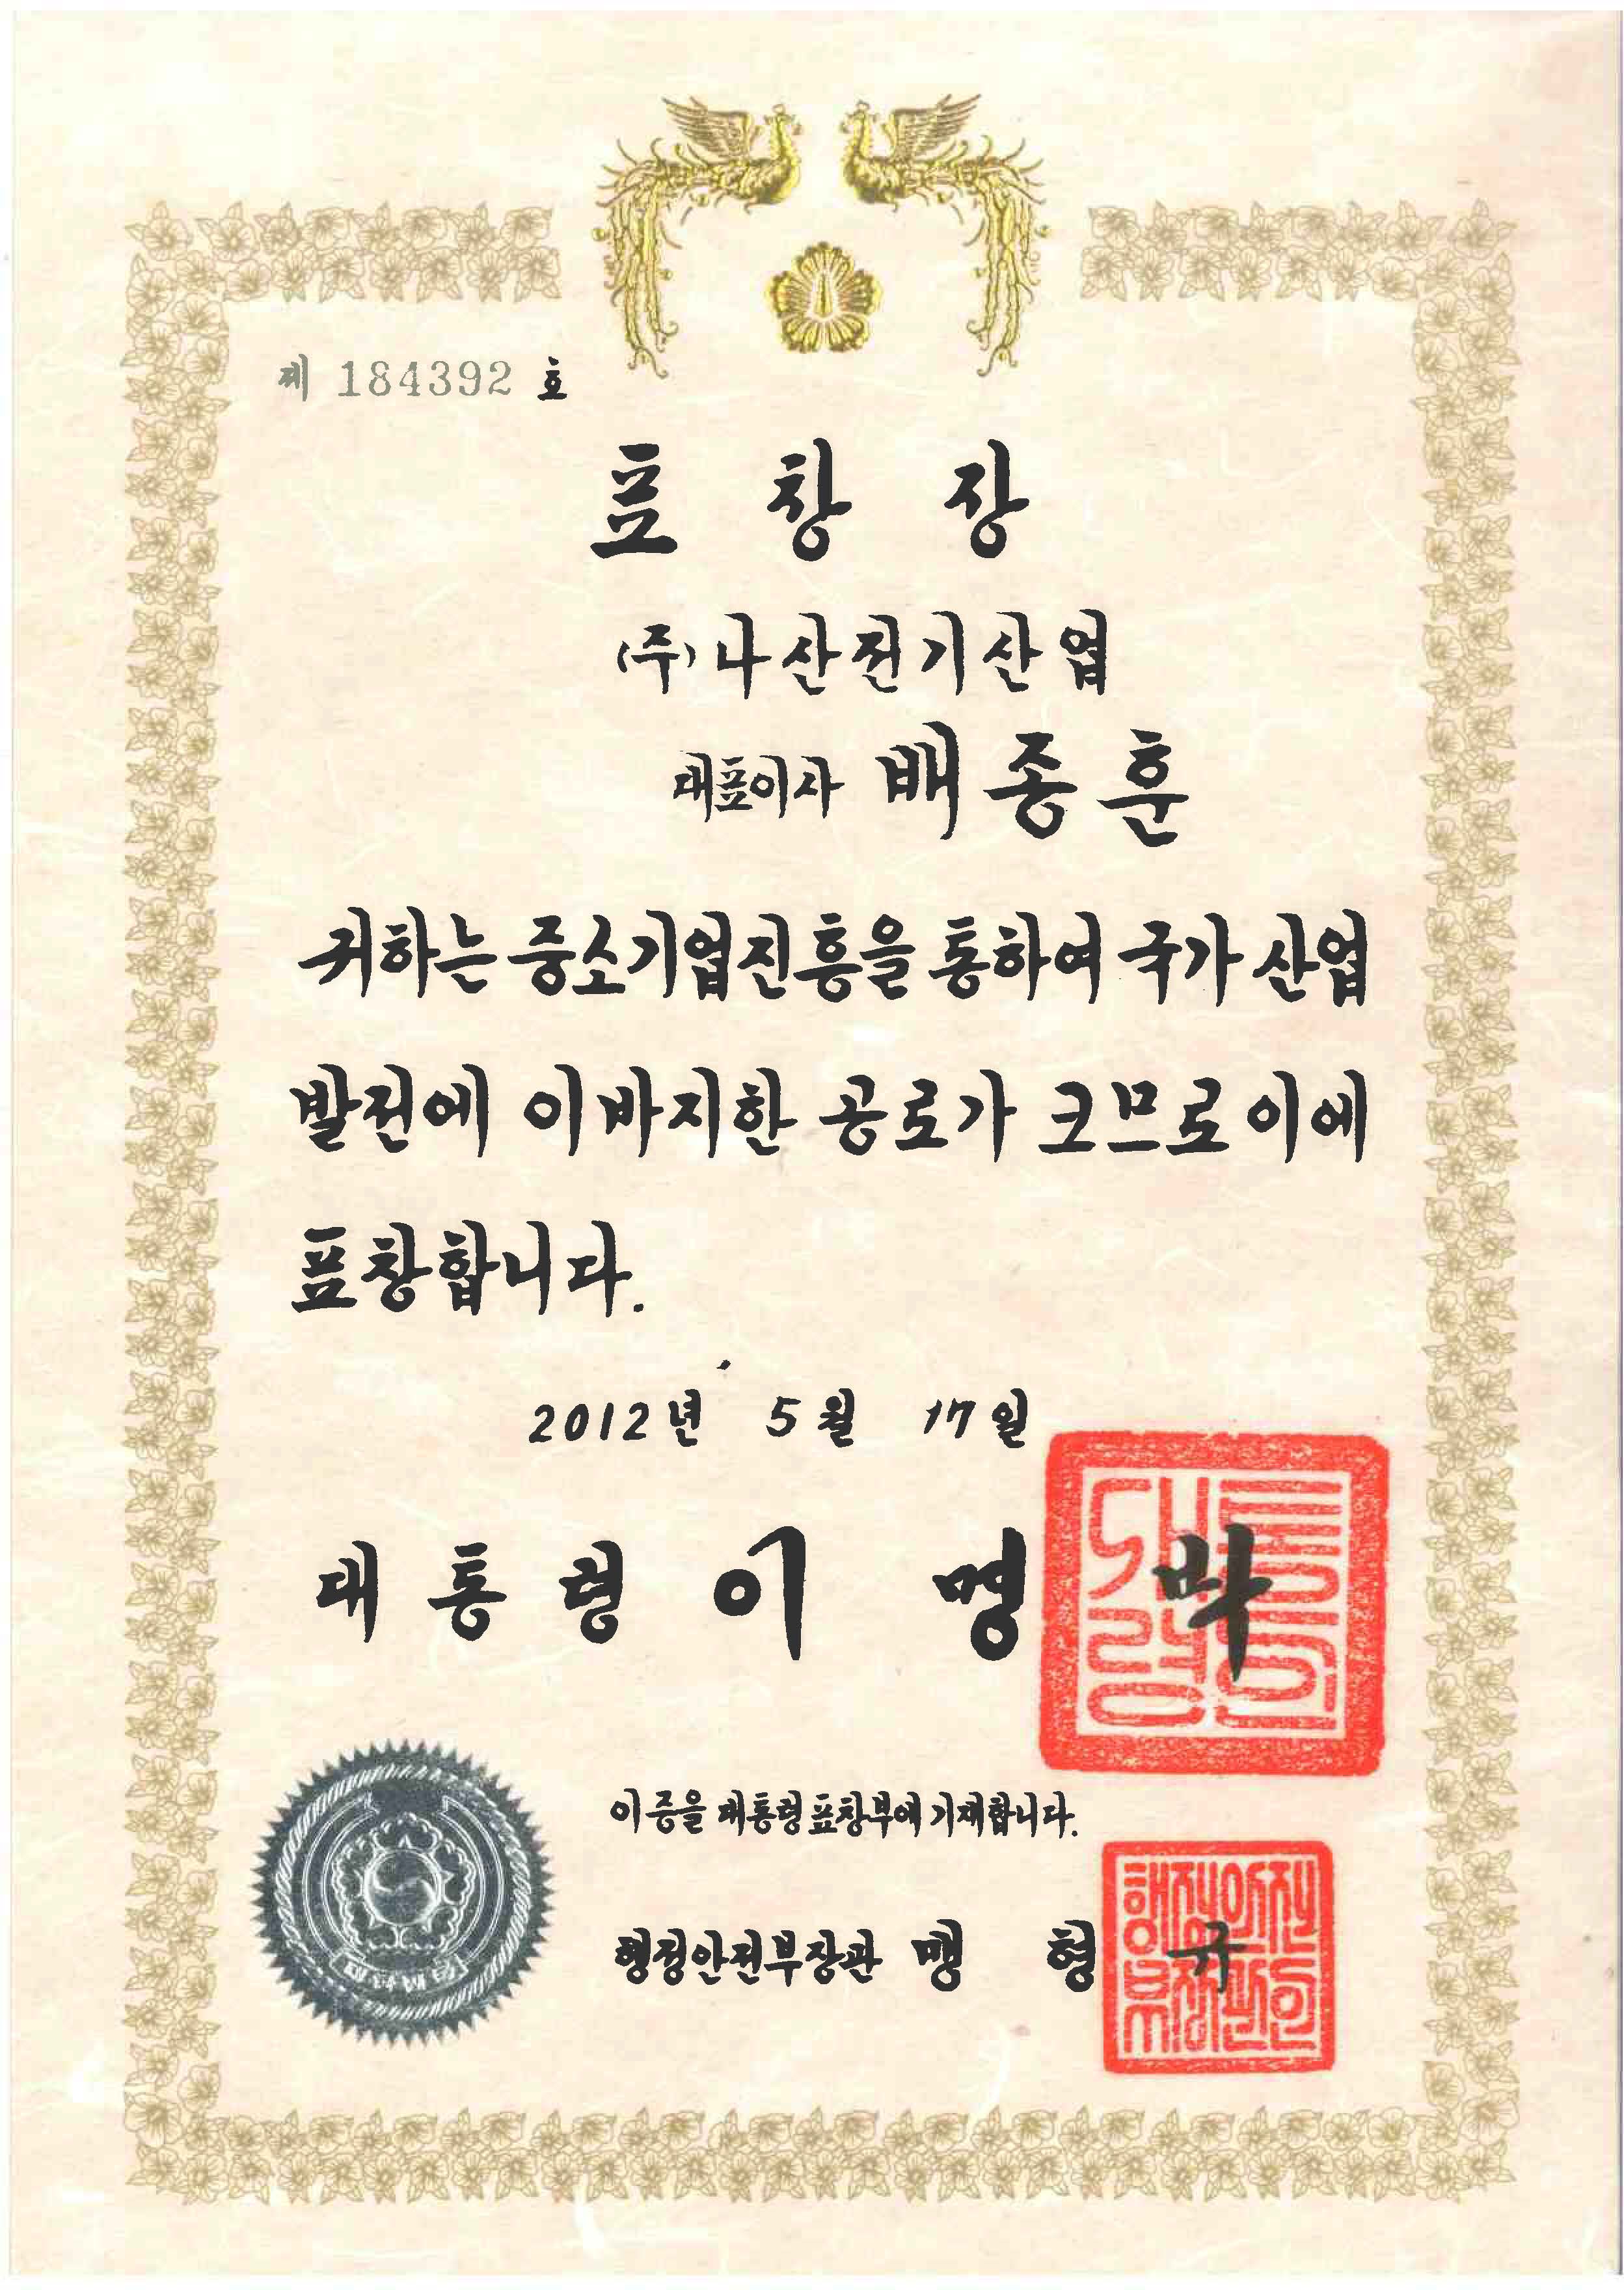 제 184392 호
표 창 장
(주)나산전기산업
대표이사 배종훈
귀하는 중소기업진흥을 통하여 국가 산업
발전에 이바지한 공로가 크므로 이에
표창합니다.
2012년 5월 17일
대통령 이 명 박
대통령의인
이 증을 대통령표창부에 기재합니다.
행정안전부장관 맹 형 규
행정안전부장관의인